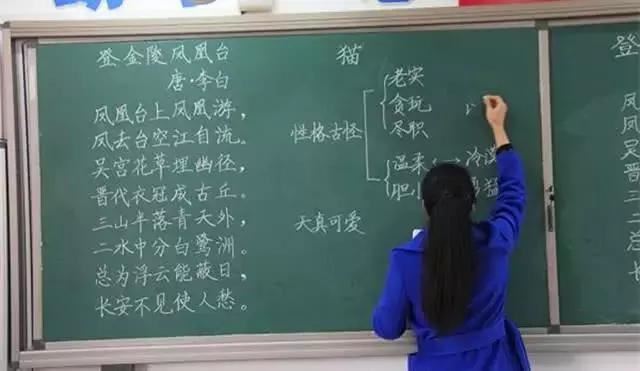 登金陵凤凰台
唐·李白
凤凰台上凤凰游，
凤去台空江自流。
吴宫花草埋幽径，
晋代衣冠成古丘。
三山半落青天外，
二水中分白鹭洲。
总为浮云能蔽日，
长安不见使人愁。
猫
性格古怪
老实
贪玩
尽职
温柔
冷漠
胆小
猛
天真可爱
登
凤
凤
吴
晋
三
二
总
长